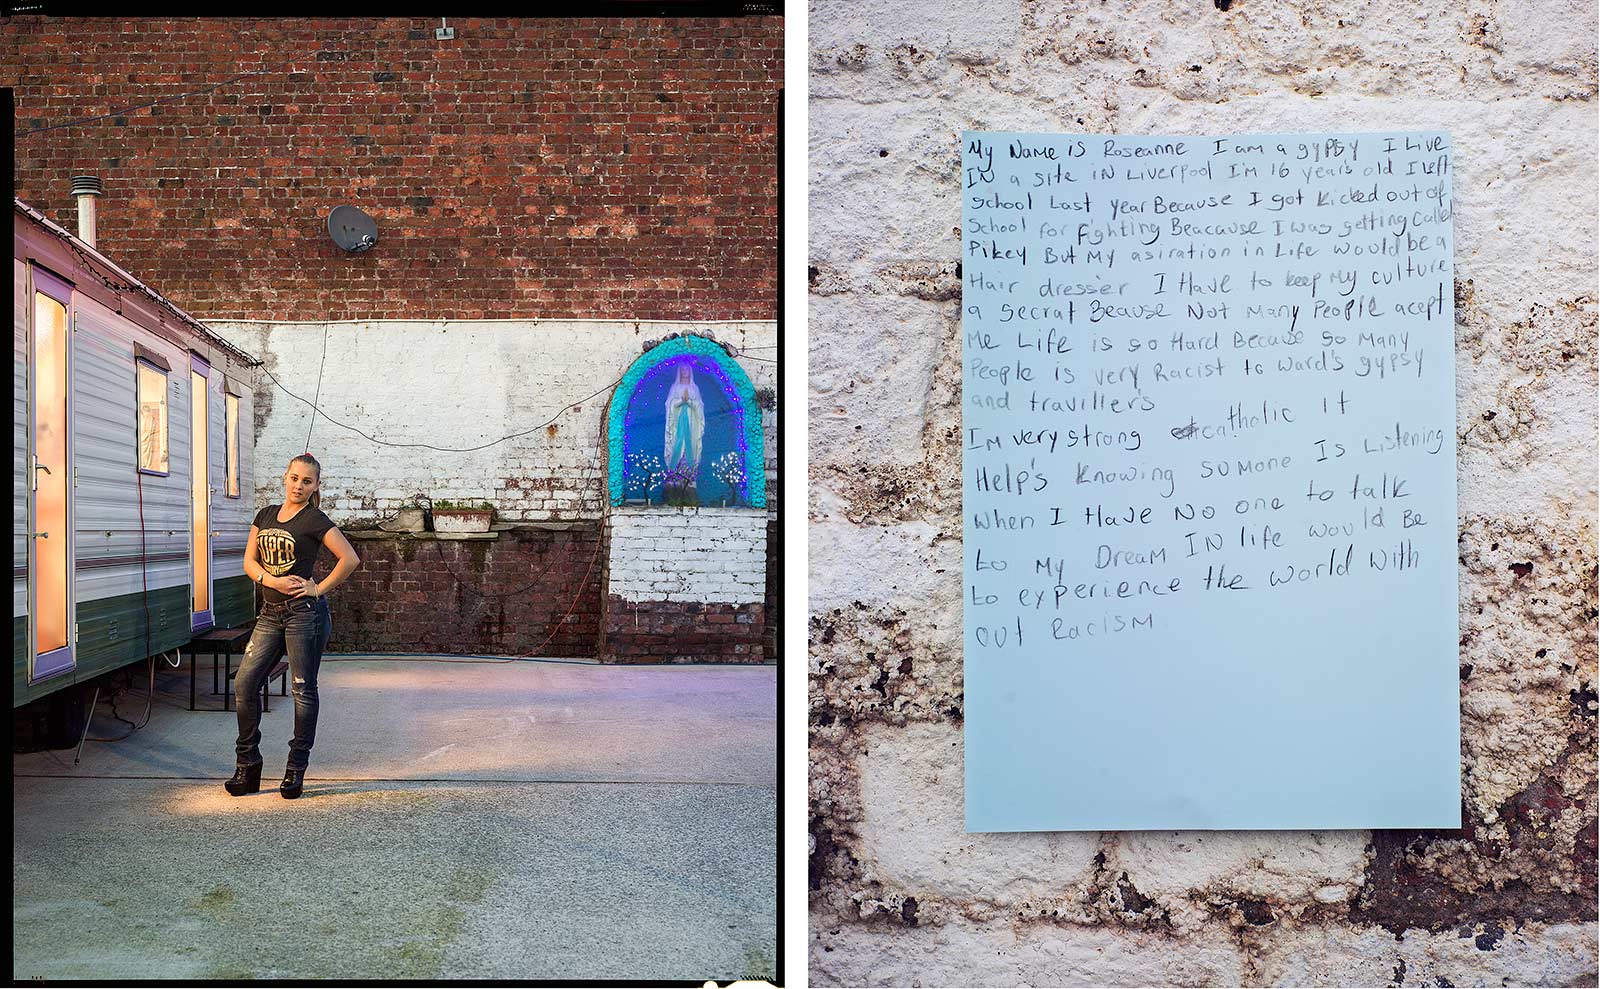 SUPER
My Name is Roseanne I am a gypsy I Live
IN a site iN Liverpool I'm 16 years old I left
School Last year Because I got kicked out of
School for fighting Beacause I was getting called
Pikey But My asiration in Life would be a
Hair dresser I Have to keep My culture
a Secrat Beause Not Many People acept
Me Life is so Hard Because So Many
People is very Racist to ward's gypsy
and traviller's
I'm very strong catholic It
Help's knowing somone Is Listening
When I Have No one to talk
to My Dream IN life would Be
to experience the world with
out Racism